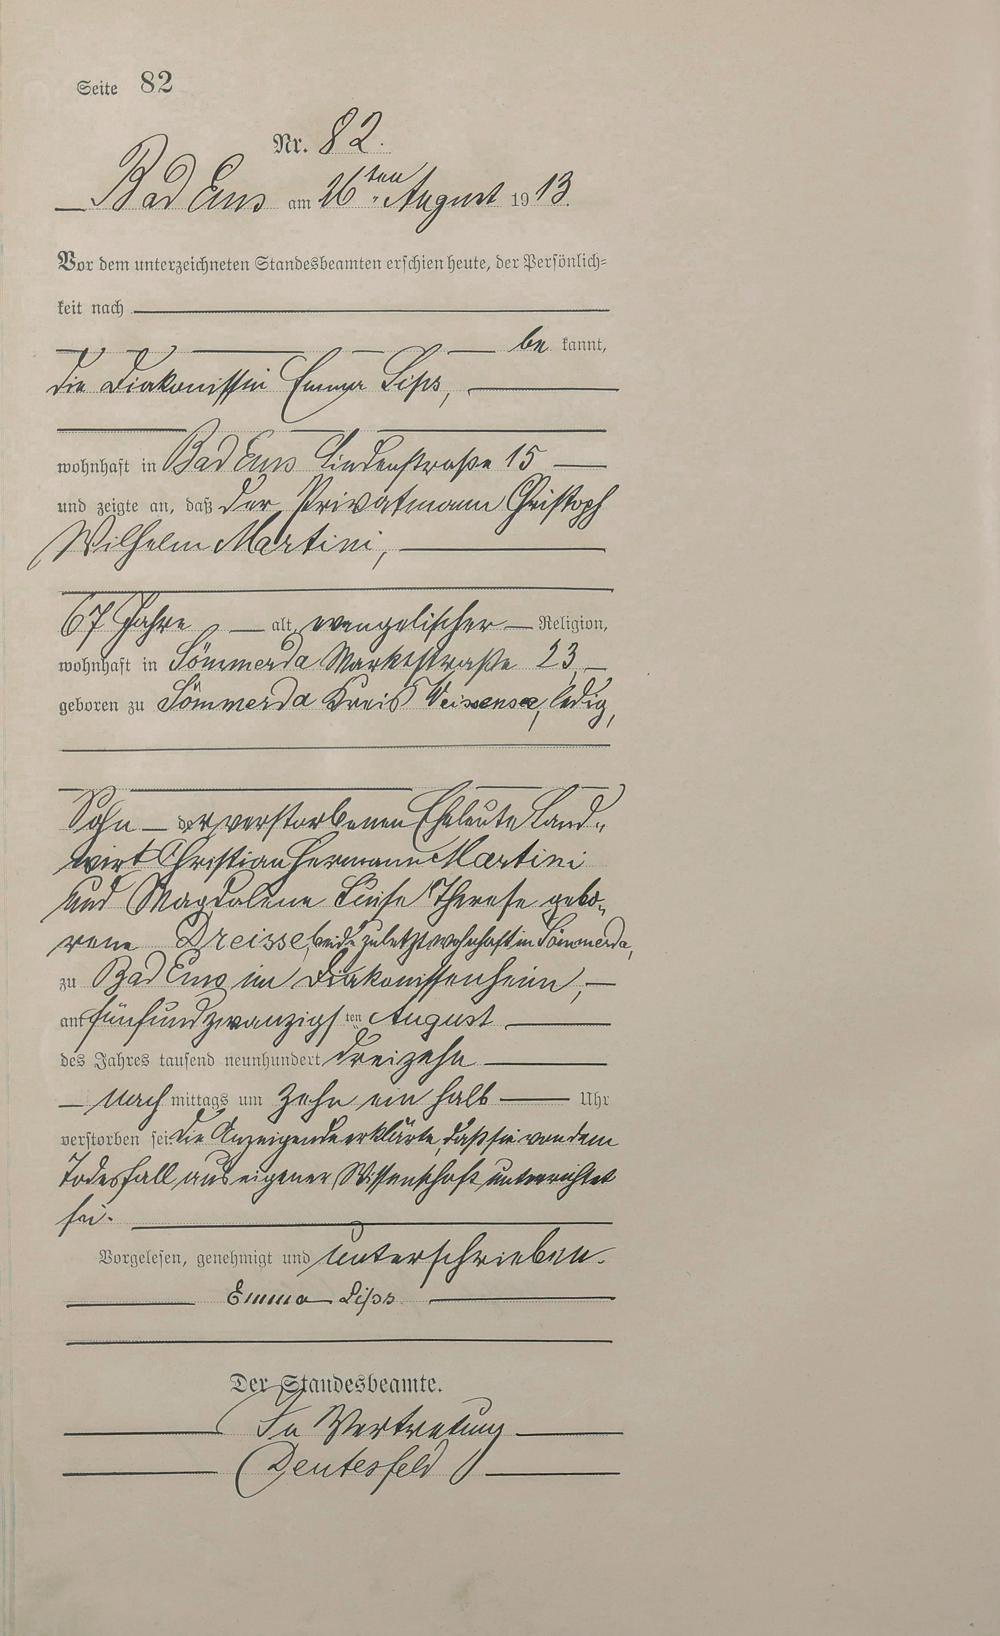 Seite 82
Nr. 82.
Bad Ems am 26ten August 1913.
Vor dem unterzeichneten Standesbeamten erschien heute, der Persönlich=
keit nach
be kannt,
die Diakonissin Emma Lips,
wohnhaft in Bad Ems Lindenstraße 15
und zeigte an, daß der Privatmann Christoph
Wilhelm Martini,
67 Jahre alt, evangelischer Religion,
wohnhaft in Sömmerda Marktstraße 23
geboren zu Sömmerda Kreis Weissensee, ledig,
Sohn der verstorbenen Eheleute Land-
wirt Christian Hermann Martini
und Magdalene Luise Therese gebo-
rene Dreisse, beide zuletzt wohnhaft in Sömmerda,
zu Bad Ems im Diakonissenheim,
am fünfundzwanzigsten August
des Jahres tausend neunhundert dreizehn
nach mittags um zehn ein halb Uhr
verstorben sei. Die Anzeigende erklärte, daß sie von dem
Todesfall aus eigener Wissenschaft unterrichtet
sei.
Vorgelesen, genehmigt und unterschrieben.
Emma Lips
Der Standesbeamte.
In Vertretung
Deutesfeld